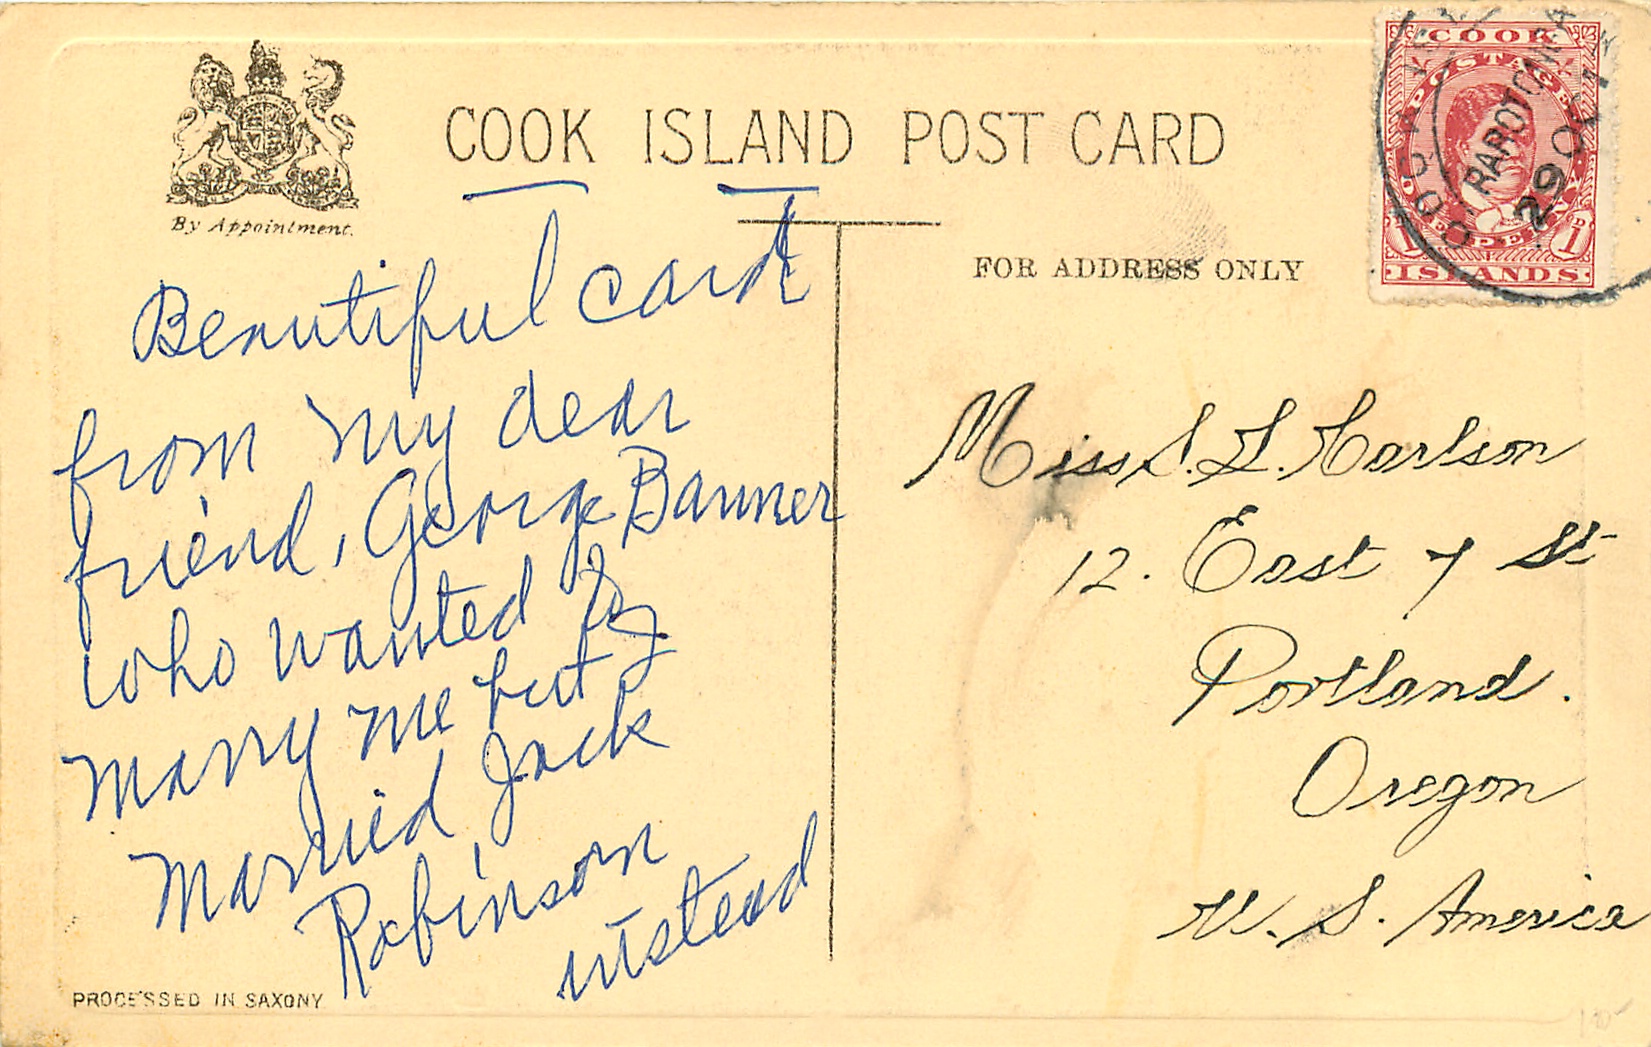 By Appointment.
COOK ISLAND POST CARD
FOR ADDRESS ONLY
COOK
POSTAGE
ONE PENNY
1D
ISLANDS
RAROTONGA
29 OC
Beautiful card
from my dear
friend, George Banner
who wanted to
marry me but I
married Jack
Robinson
instead
Miss S. L. Carlson
12. East 7 St
Portland.
Oregon
U. S. America
PROCESSED IN SAXONY